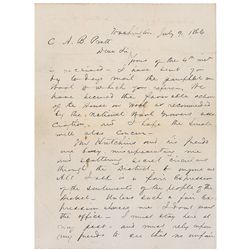 Washington July 9, 1866
C. A. B. Pratt
Dear Sir,
Yours of the 4th inst
is received. I have sent you
by to-days mail the pamphlet on
Wool to which you refer. We
have secured the favorable action
of the House on Wool as recommended
by the National Wool Growers asso-
ciation, and I hope the Senate
will also concur.
Mr Hutchins and his friends
are busy misrepresenting me
and scattering secret circulars
through the District.
All I ask is a fair expression
of the sentiments of the people of the
District. Unless such a fair ex-
pression favors me I do not want
the office. I must stay here at
my post, and must rely upon
my friends to see that no unfair